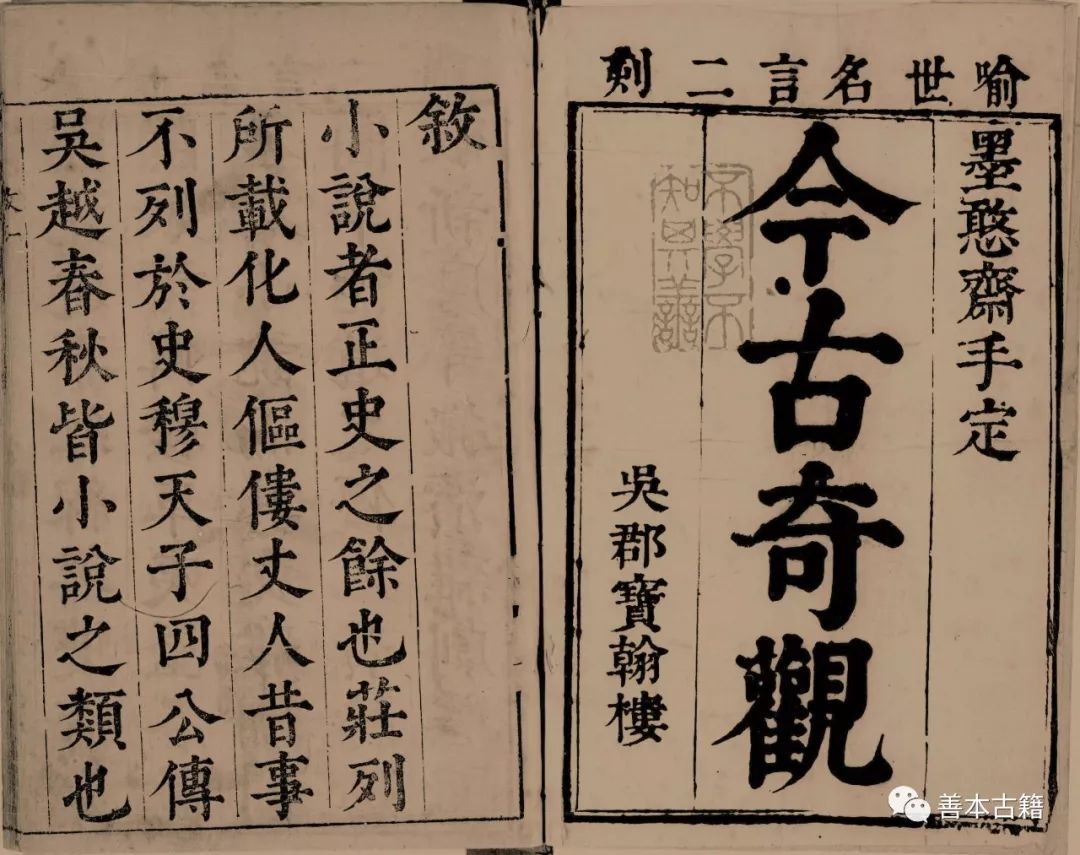 喻世名言二刻
墨憨齋手定
今古奇觀
吳郡寶翰樓
不學不
知其善
敘
小說者正史之餘也莊列
所載化人傴僂丈人昔事
不列於史穆天子四公傳
吳越春秋皆小說之類也
善本古籍